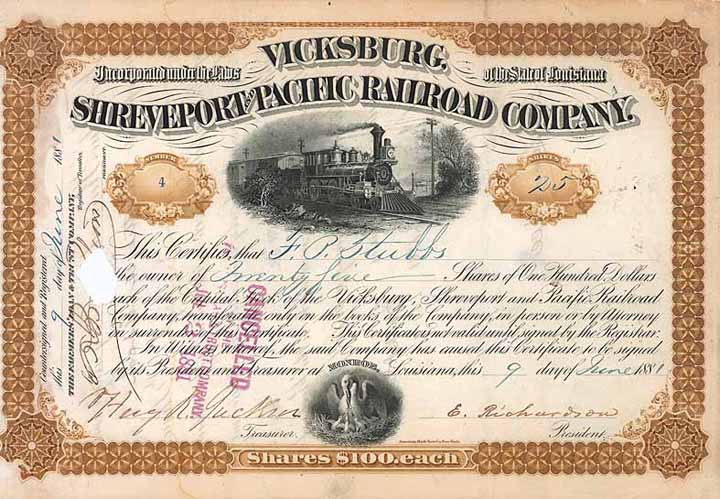 VICKSBURG,
Incorporated under the Laws of the State of Louisiana
SHREVEPORT AND PACIFIC RAILROAD COMPANY.
NUMBER
4
SHARES
25
This Certifies, that F. P. Stubbs
the owner of Twenty five Shares of One Hundred Dollars
each of the Capital Stock of the Vicksburg, Shreveport and Pacific Railroad
Company, transferable only on the books of the Company, in person or by Attorney
on surrender of this Certificate. This Certificate is not valid until signed by the Registrar.
In Witness whereof, the said Company has caused this Certificate to be signed
by its President and Treasurer at Louisiana, this 9 day of June 1881
Treasurer.
E. Richardson
President.
Shares $100. each
Countersigned and Registered
this 9 day of June 1881
Registrar of Transfers.
CANCELLED
COMPANY